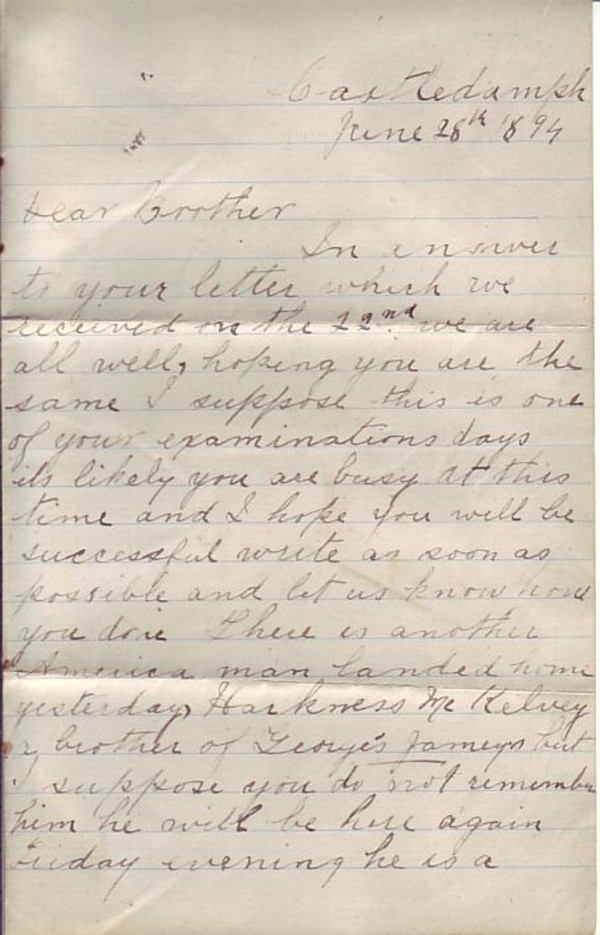 Castledamph
June 28th '94
Dear Brother
In answer
to your letter which we
received on the 22nd. we are
all well, hoping you are the
same I suppose this is one
of your examinations days
its likely you are busy at this
time and I hope you will be
successful write as soon as
possible and let us know how
you done There is another
America man landed home
yesterday, Harkness Mc Kelvey
a brother of George's Jameys but
I suppose you do not remember
him he will be here again
Friday evening he is a